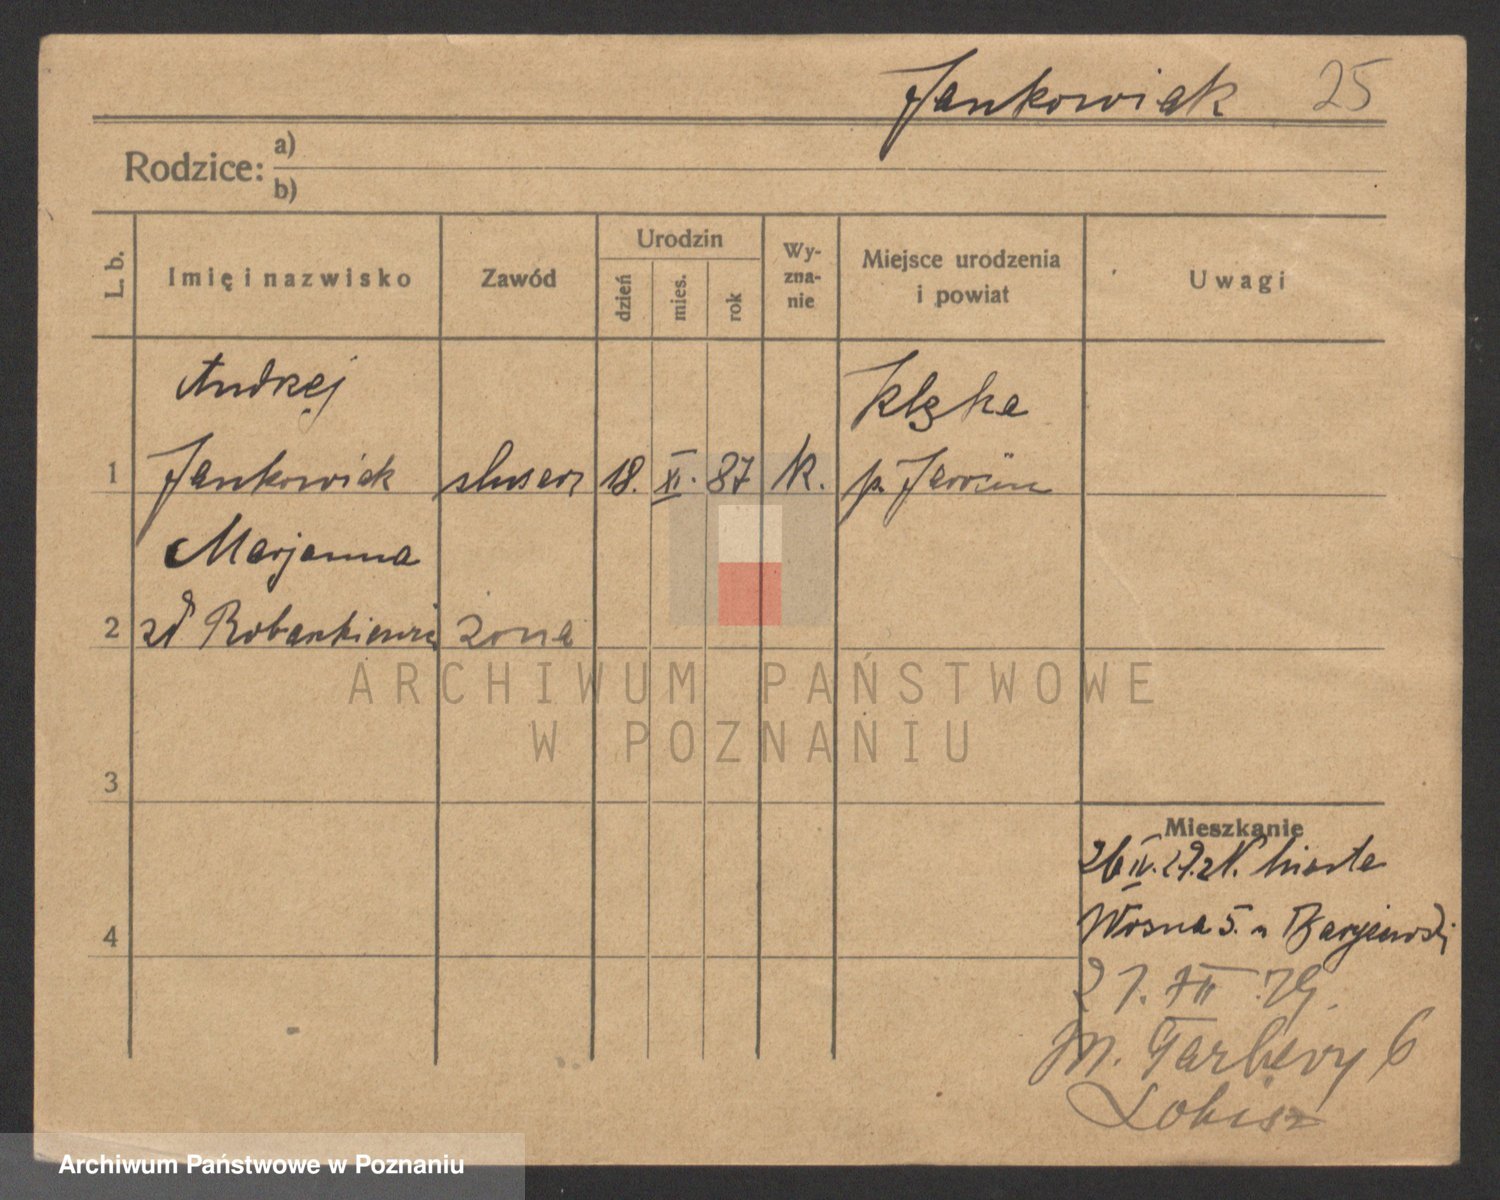 Jankowiak 25
Rodzice: a)
b)
L. b.
Imię i nazwisko
Zawód
Urodzin
dzień
mies.
rok
Wy-
zna-
nie
Miejsce urodzenia
i powiat
Uwagi
Andrzej
Klęka
1 Jankowiak slusarz 18. XI. 87 K. p. Jarocin
Marjanna
2 zd Robaszkiewicz żona
3
4
Mieszkanie
26 IV. 29. z N. Miasta
Wrosna 5.
21. XII 29.
m. Garbary 6
Lokisz
ARCHIWUM PAŃSTWOWE
W POZNANIU
Archiwum Państwowe w Poznaniu